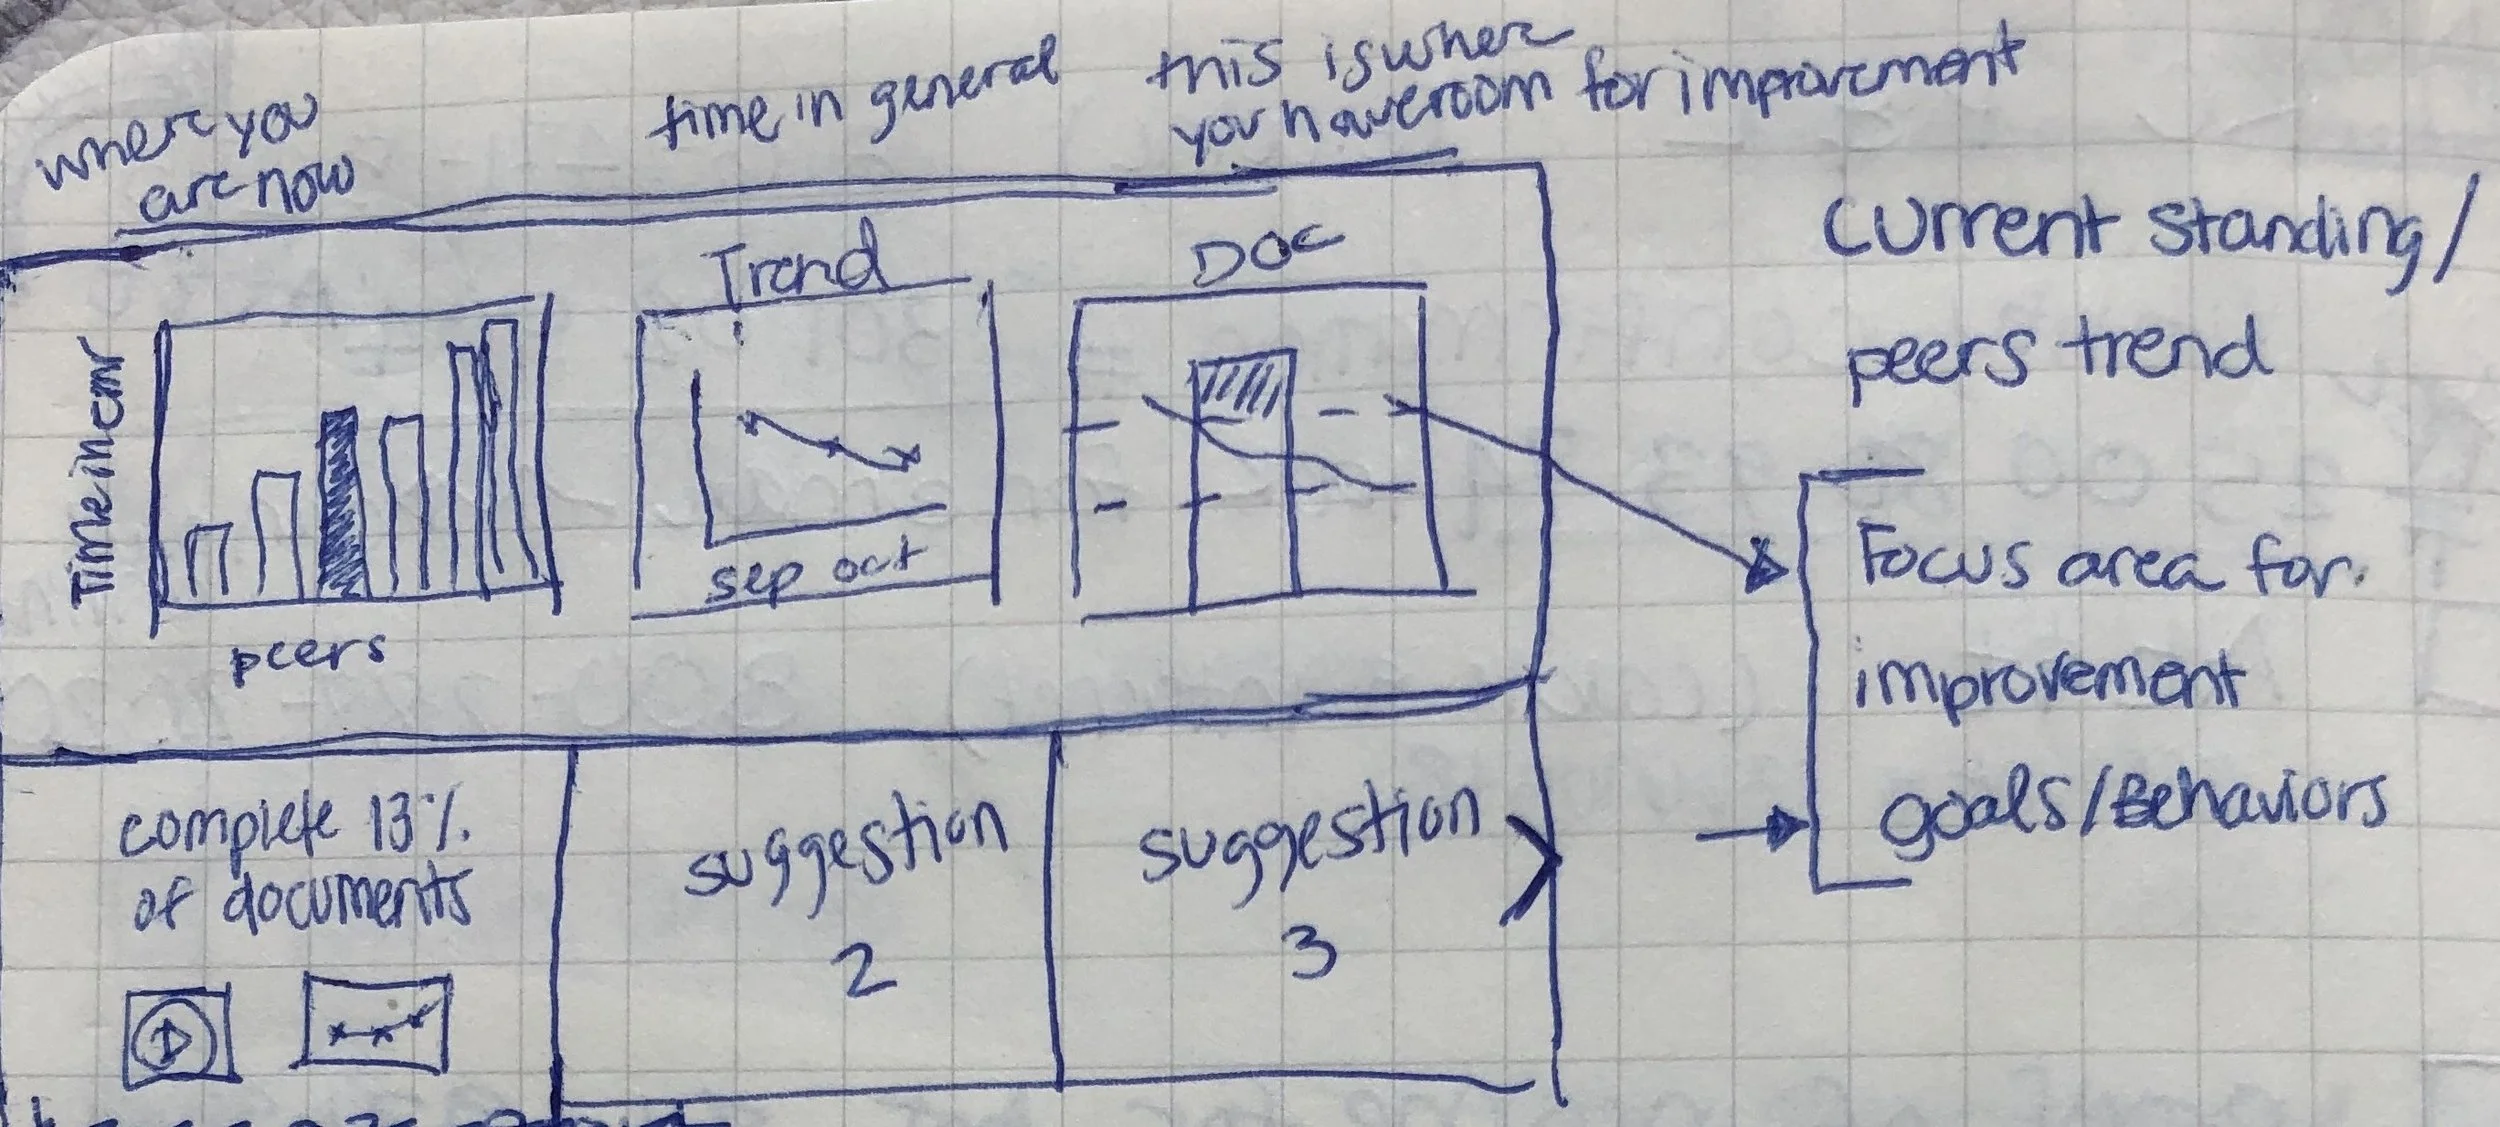 where you
are now
time in general
this is where
you have room for improvement
Trend
DOC
Time in emr
peers
sep oct
current standing/
peers trend
Focus area for
improvement
goals/Behaviors
complete 13%
of documents
suggestion
2
suggestion
3